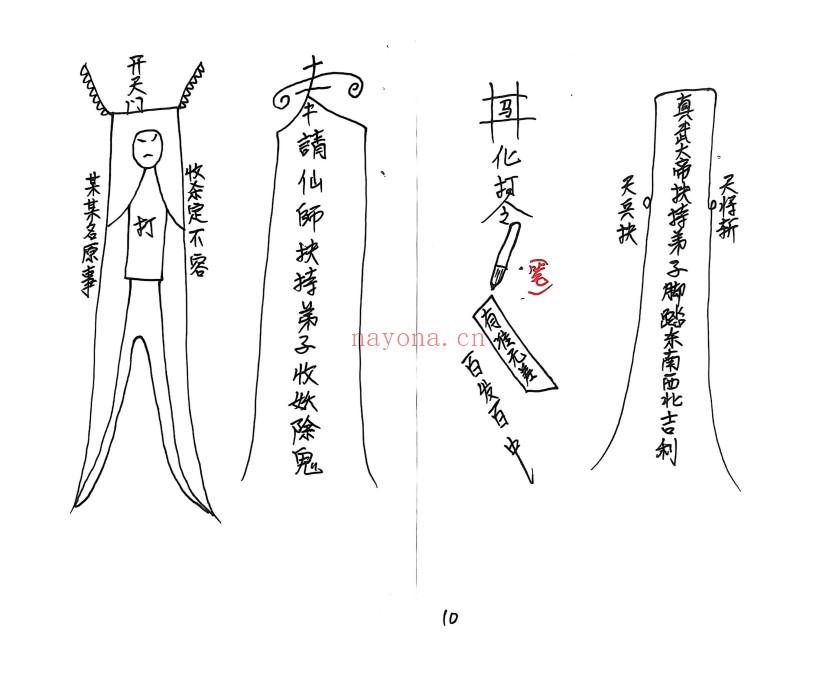 开天门
收杀定不容
打
某某名原事
奉
申請仙師扶持弟子收妖除鬼
马
化打令
(笔)
有准无差
百发百中
真武大帝扶持弟子脚踏东南西北吉利
天将斩
天兵扶
nayona.cn
10